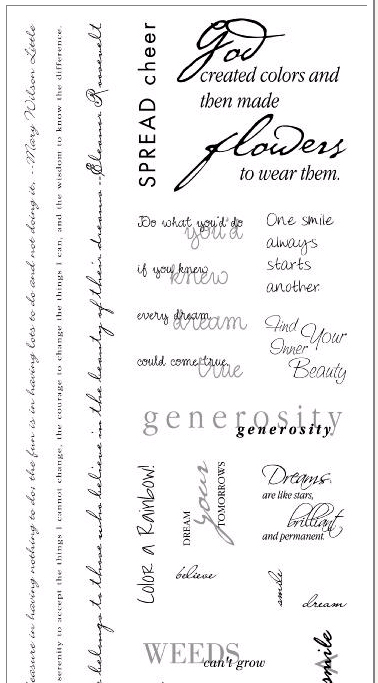 easure in having nothing to do; the fun is in having lots to do and not doing it. --Mary Wilson Little
serenity to accept the things I cannot change, the courage to change the things I can, and the wisdom to know the difference.
belongs to those who believe in the beauty of their dreams --Eleanor Roosevelt
SPREAD cheer
God
created colors and
then made
flowers
to wear them.
Do what you'd do
you'd
if you knew
knew
every dream
dream
could come true
true
One smile
always
starts
another.
Find Your
Inner
Beauty
generosity
generosity
Color a Rainbow!
DREAM
your
TOMORROWS
Dreams
are like stars,
brilliant
and permanent.
believe
smile
dream
WEEDS
can't grow
smile